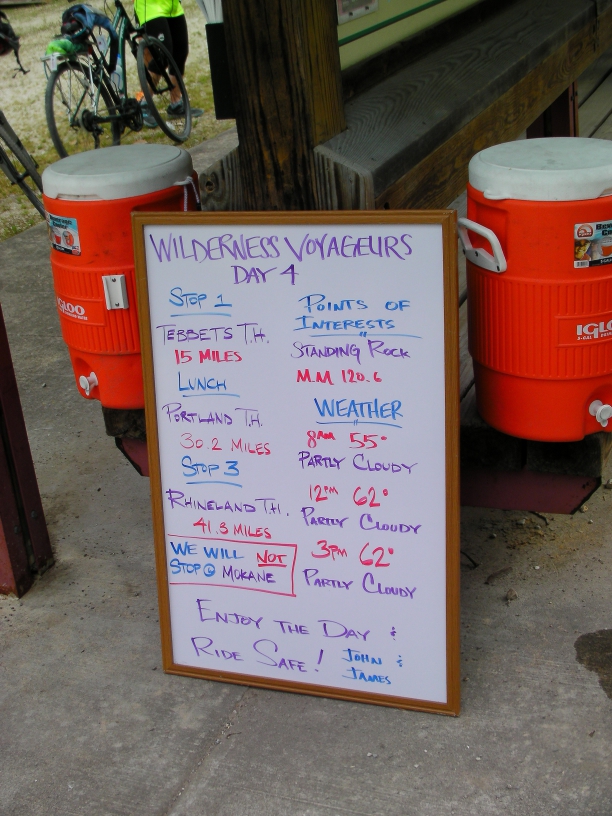 WILDERNESS VOYAGEURS
DAY 4
STOP 1
TEBBETS T.H.
15 MILES
LUNCH
PORTLAND T.H.
30.2 MILES
STOP 3
RHINELAND T.H.
41.3 MILES
WE WILL NOT
STOP @ MOKANE
POINTS OF
INTERESTS
STANDING ROCK
M.M 120.6
WEATHER
8AM 55°
PARTLY CLOUDY
12PM 62°
PARTLY CLOUDY
3PM 62°
PARTLY CLOUDY
ENJOY THE DAY &
RIDE SAFE! JOHN &
JAMES
IGLOO
IGLOO